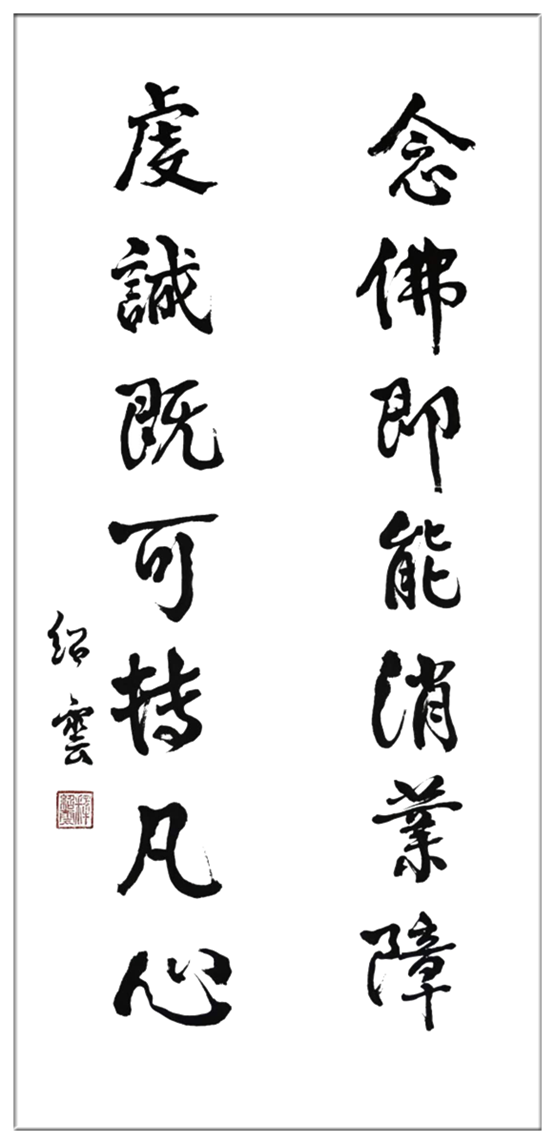 念佛即能消業障
虔誠既可轉凡心
紹雲